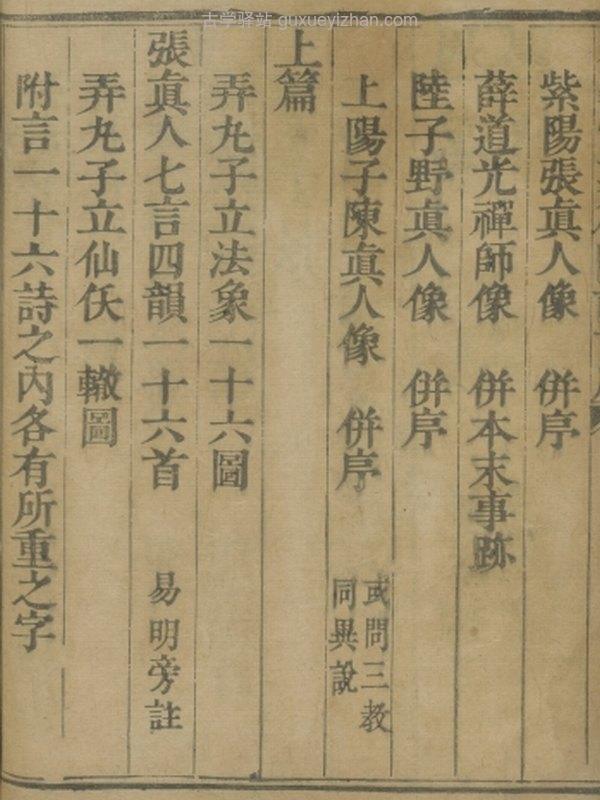 古学驿站 guxueyizhan.com
紫陽張真人像　併序
薛道光禪師像　併本末事跡
陸子野真人像　併序
上陽子陳真人像　併序　或問三教同異說
上篇
弄丸子立法象一十六圖
張真人七言四韻一十六首　易明旁註
弄丸子立仙仸一轍圖
附言一十六詩之內各有所重之字